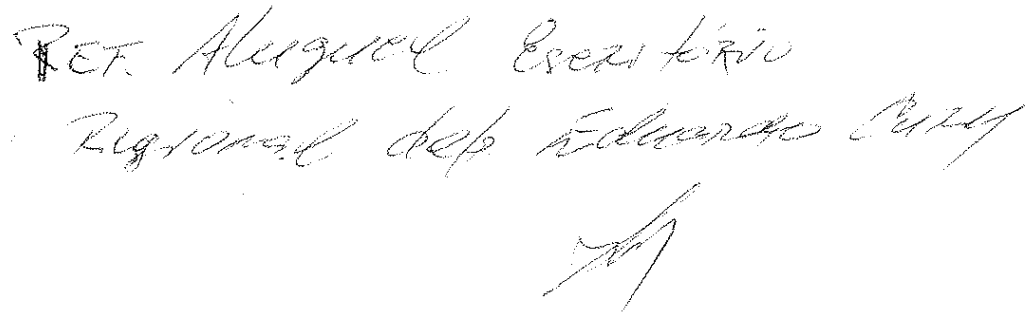 REF. Aluguel Escritório
Regional dep. Eduardo Cury